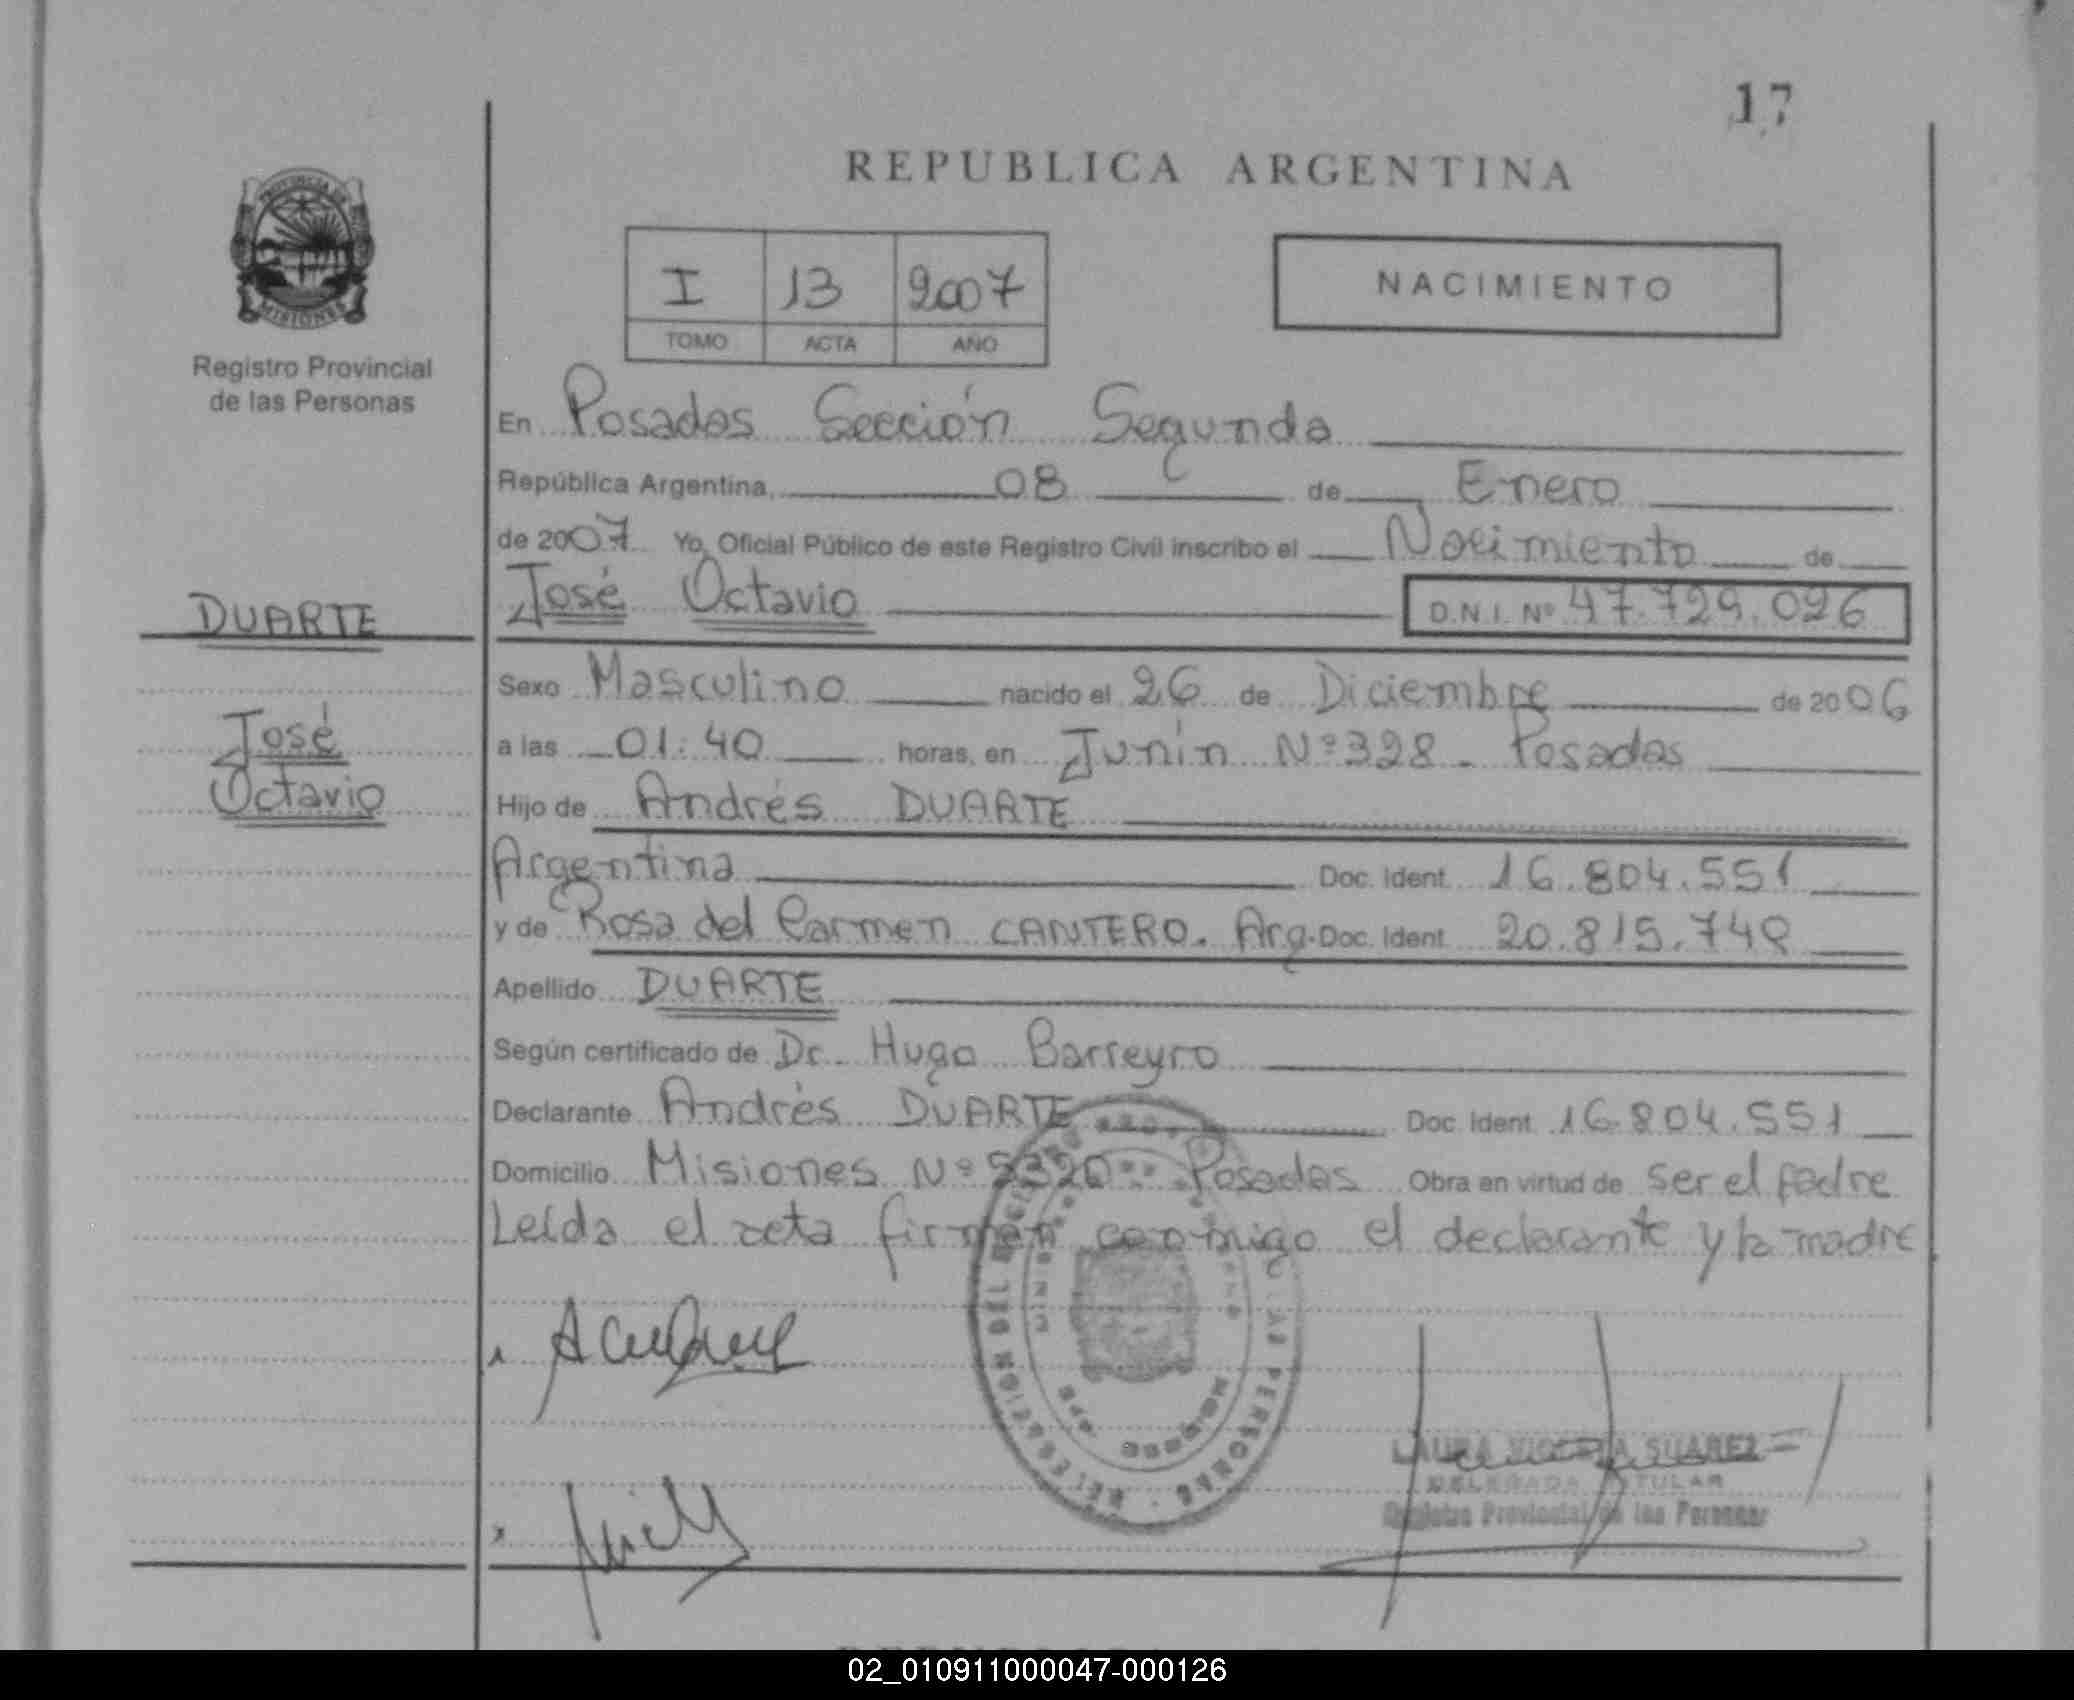 17
REPUBLICA ARGENTINA
PROVINCIA DE
MISIONES
Registro Provincial
de las Personas
I 13 2007
TOMO ACTA AÑO
NACIMIENTO
En Posadas Sección Segunda
República Argentina, 08 de Enero
de 2007 Yo, Oficial Público de este Registro Civil inscribo el Nacimiento de
DUARTE
José Octavio D.N.I. Nº 47.729.026
Sexo Masculino nacido el 26 de Diciembre de 2006
José
a las 01:40 horas, en Junín Nº 328 - Posadas
Octavio
Hijo de Andrés DUARTE
Argentina Doc. Ident. 16.804.551
y de Rosa del Carmen CANTERO. Arg. Doc. Ident. 20.815.748
Apellido DUARTE
Según certificado de Dr. Hugo Barreyro
Declarante Andrés DUARTE Doc. Ident. 16.804.551
Domicilio Misiones Nº 5320 Posadas Obra en virtud de ser el padre
Leída el acta firman conmigo el declarante y la madre
DELEGACION DEL REGISTRO
LAS PERSONAS
LAURA SUAREZ
DELEGADA TITULAR
Registro Provincial de las Personas
02_010911000047-000126